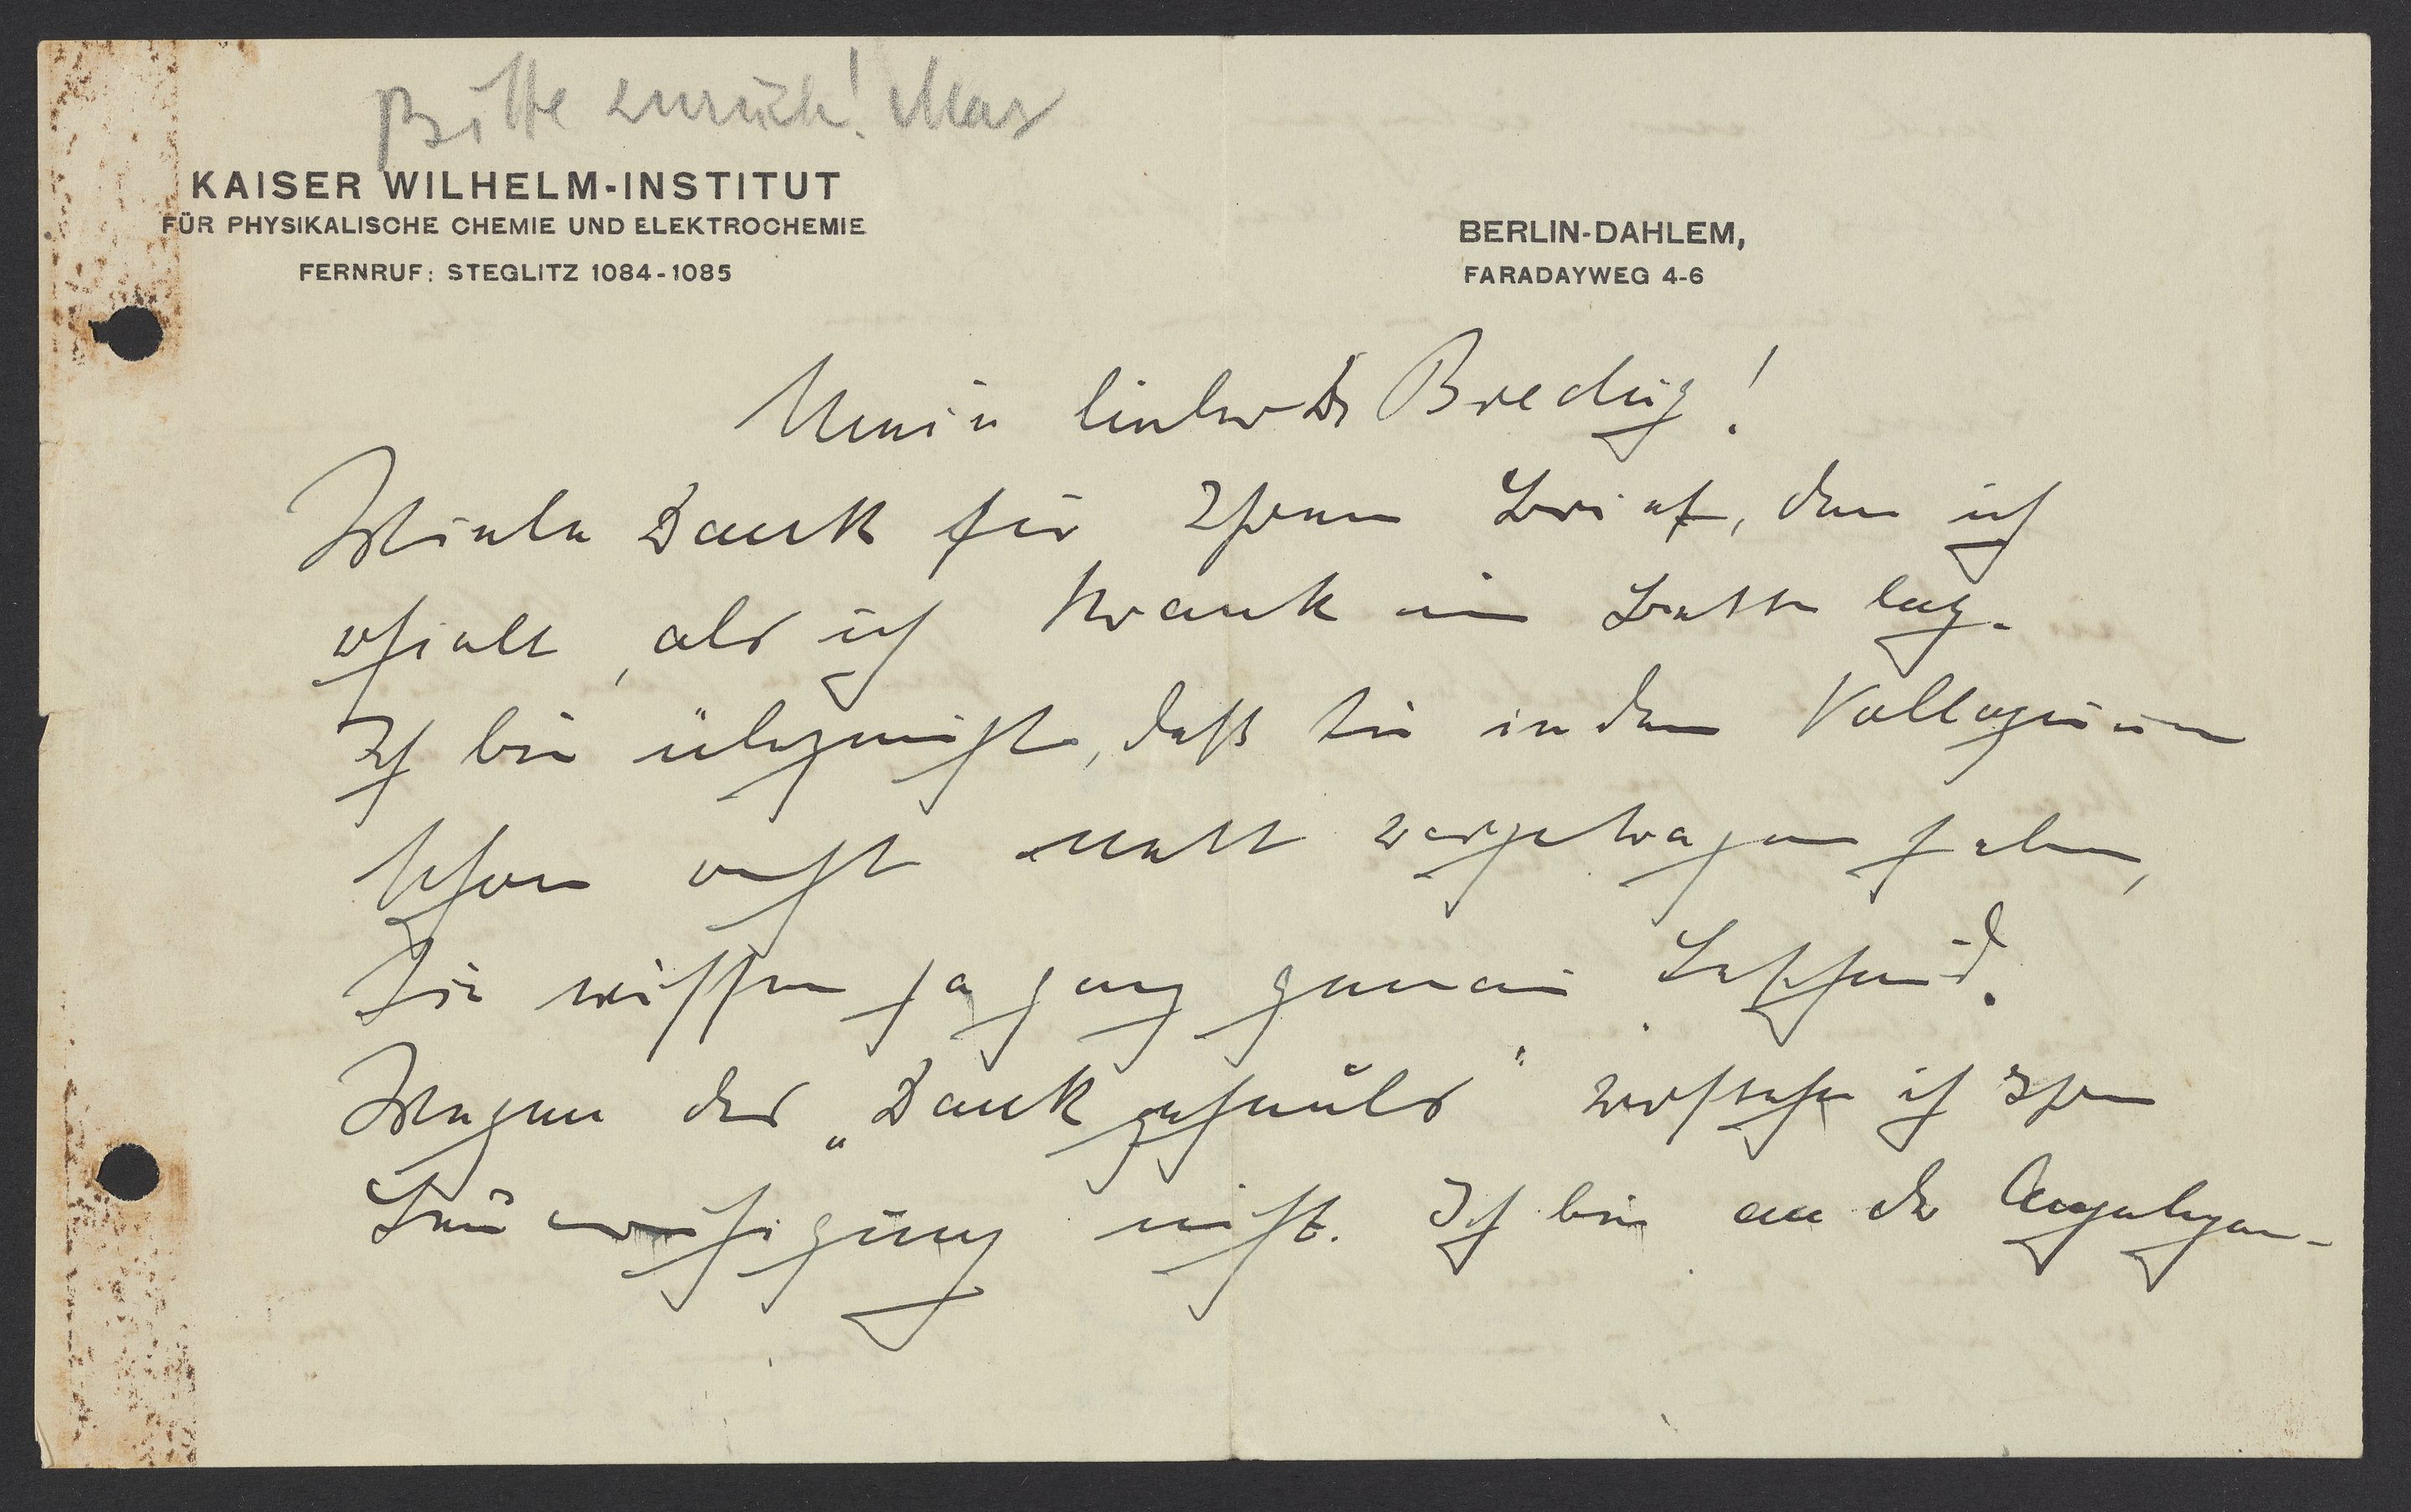 Bitte zurück! Max
KAISER WILHELM-INSTITUT
FÜR PHYSIKALISCHE CHEMIE UND ELEKTROCHEMIE
FERNRUF: STEGLITZ 1084-1085
BERLIN-DAHLEM,
FARADAYWEG 4-6
Mein lieber Dr Bredig!
Vielen Dank für Ihren Brief, den ich
erhielt, als ich krank im Bette lag.
Ich bin überzeugt, daß Sie in dem Kolloquium
schon recht nett vorgetragen haben,
Sie wissen ja ganz genau Bescheid.
Wegen des „Dankgeheuls" verstehe ich Ihre
Beunruhigung nicht. Ich bin an der Angelegen-